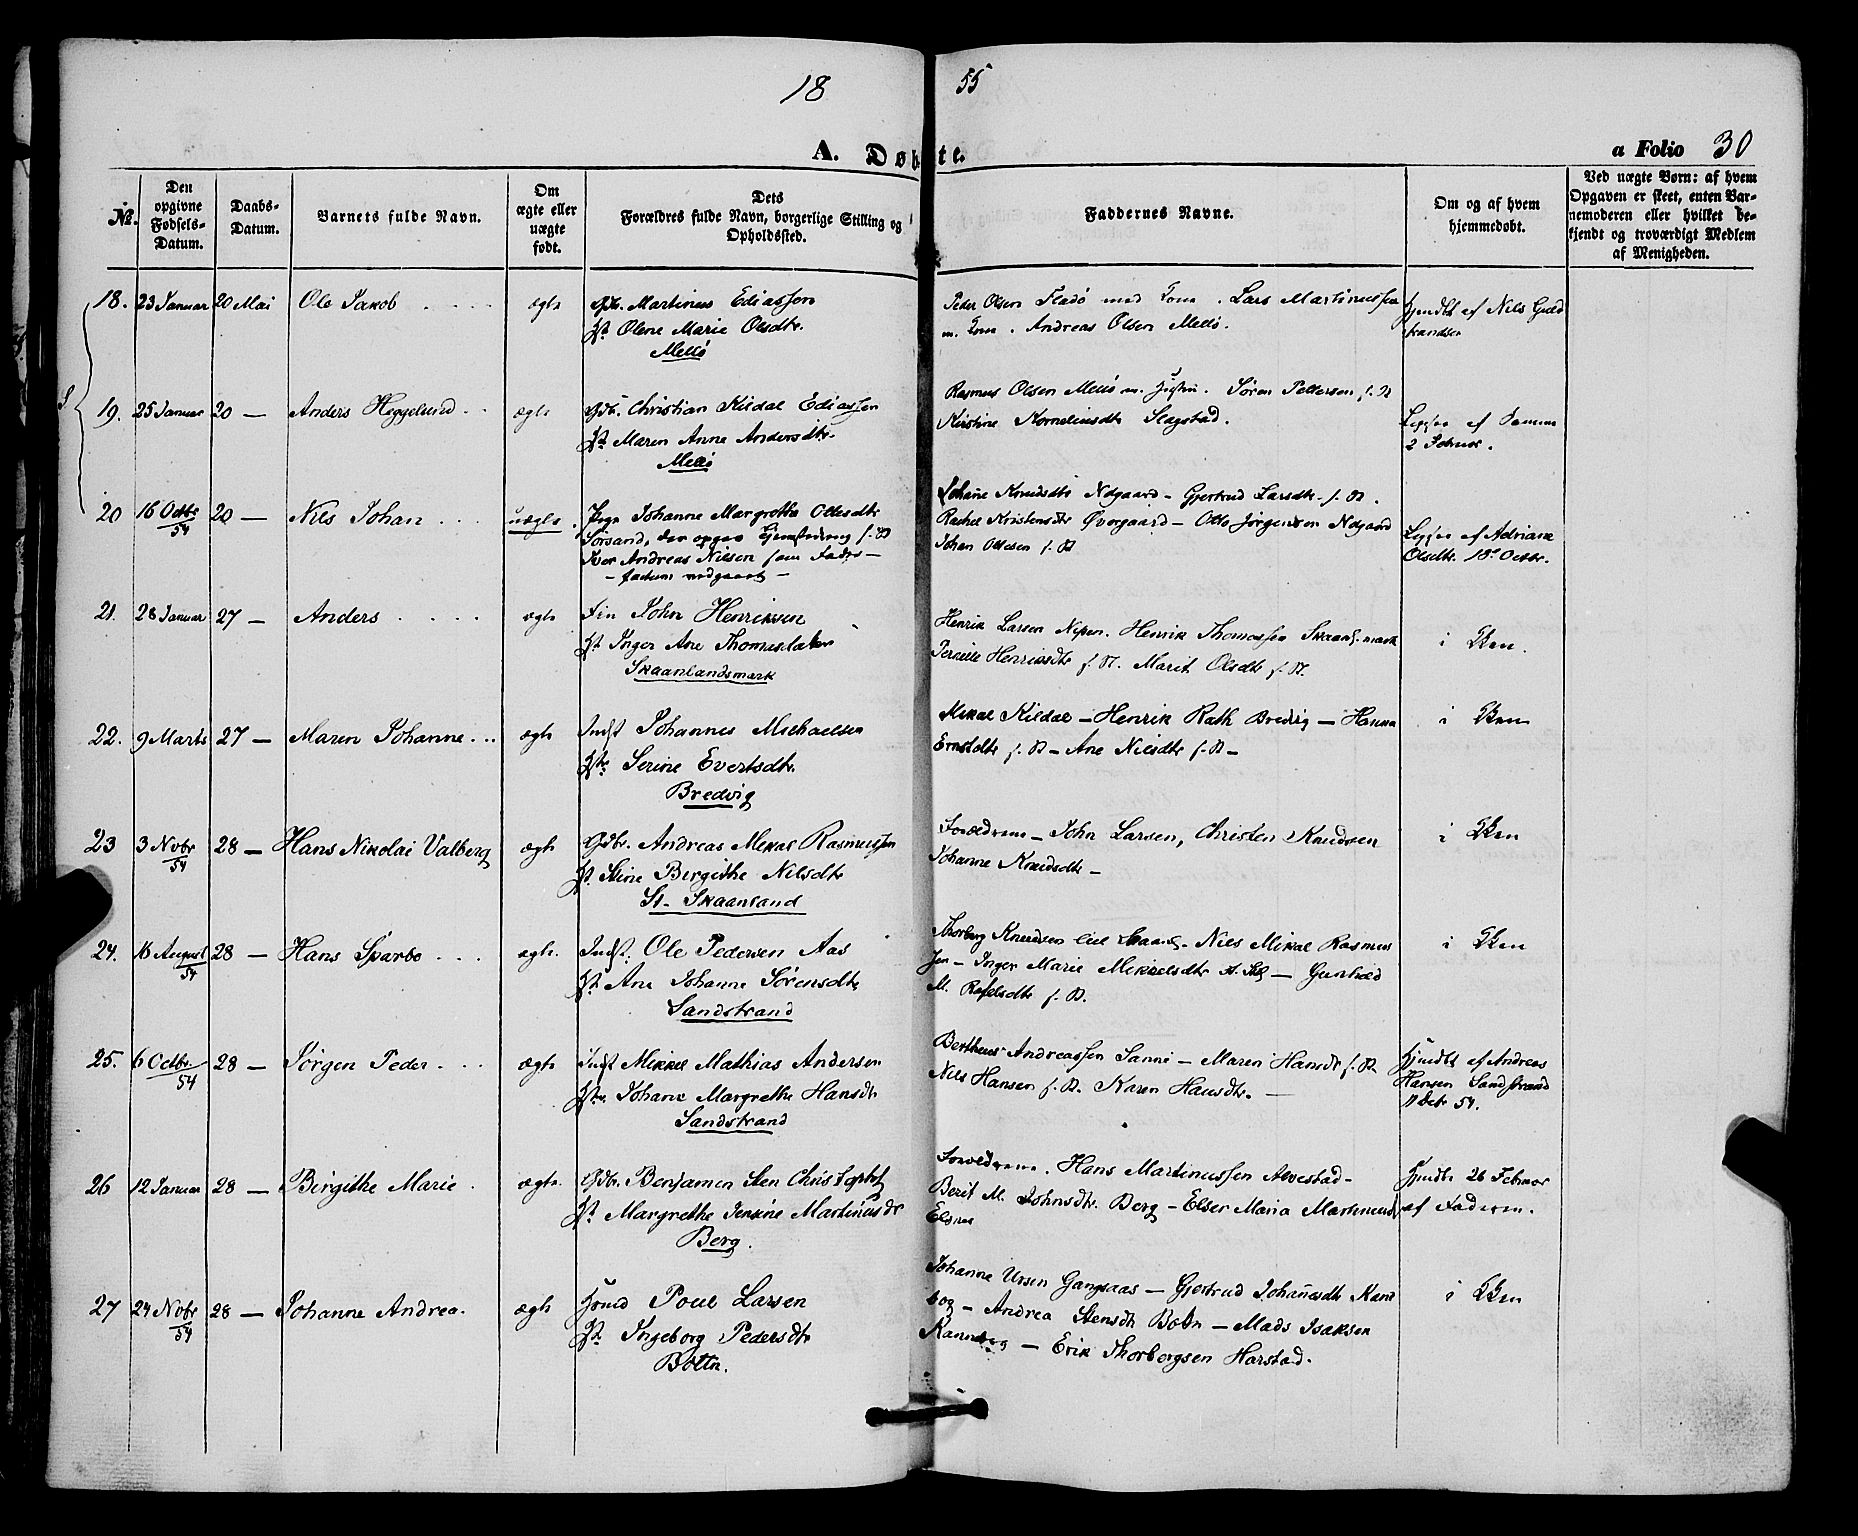 18 55
A. Døbte. a Folio 30
№. Den opgivne Fødsels-Datum. Daabs-Datum. Barnets fulde Navn. Om ægte eller uægte født. Dets Forældres fulde Navn, borgerlige Stilling og Opholdssted. Faddernes Navne. Om og af hvem hjemmedøbt. Ved uægte Børn: af hvem Opgaven er skeet, enten Barnemoderen eller hvilket bekjendt og troværdigt Medlem af Menigheden.
18. 23 Januar 20 Mai Ole Jakob ægte Gdb. Martinus Ediassen
H. Olene Marie Olsdtr.
Mellø
Peder Olsen Fladø med Kone. Lars Martinussen
m. Kone. Andreas Olsen Mellø.
Hjemdbt af Nils Guld
19. 25 Januar 20 — Anders Heggelund ægte Gdb. Christian Kildal Ediassen
H. Maren Anne Andersdtr.
Mellø
Rasmus Olsen Mellø m. Hustru. Søren Pettersen f. B
Kirstine Korneliusdtr Slagstad.
af Samme
2 Februar.
20 16 Octbr 54 20 — Nils Johan uægte. Pige Johanne Margrethe Ottesdtr
Sørsand, der opgav
Iver Andreas Nilsen som Fader —
Johane Knudsdtr Ndgaard — Gjertrud Larsdtr. f. B.
Rachel Kristensdtr Øvergaard — Otto Jørgensen Ndgaard
Johan Ottesen f. B
af Adriane
Olsdtr. 18 Octbr.
21. 28 Januar 27 — Anders ægte Fin John Henriksen
H. Inger Ane Thomasdatter
Skaanlandsmark
Henrik Larsen Nipen. Henrik Thomassen Skaanl.mark
Pernille Henriksdtr f. St. Marit Olsdtr f. B.
i Kken.
22. 9 Marts 27 — Maren Johanne ægte Indst Johannes Michaelsen
H. Serine Evertsdtr.
Bredvig
Mikal Kildal — Henrik Rath Bredvig — Hanna
Ernstdtr f. B — Ane Nilsdtr f. B —
i Kken
23 3 Novbr 54 28 — Hans Nikolai Valberg ægte Gdbr. Andreas Mikal Rasmussen
H. Stine Bergithe Nilsdtr
St. Skaanland
Forældrene — John Larsen, Christen Knudsen
Johanne Knudsdtr —
i Kken
24. 16 August 54 28 — Hans Sparbo ægte. Indst. Ole Pedersen Aas
H. Ane Johanne Sørensdtr
Sandstrand
Thorberg Knudsen Nils Mikal Rasmus
sen — Inger Marie Mikkelsdtr — Gunhild
M. Rafelsdtr f. B.
i Kken
25. 6 Octbr 54 28 — Jørgen Peder ægte Indst Mikkel Mathias Andersen
H. Johane Margrethe Hansdtr
Sandstrand
Bertheus Andreassen Sanne — Maren Hansdtr f. B
Nils Hansen f. B. Karen Hansdtr. —
Hjemdbt af Andreas
Hansen Sandstrand
54.
26 12 Januar 28 — Birgithe Marie ægte. Gdbr. Benjamin Sten Christophs
H. Margrethe Jensine Martinusdtr
Berg.
Forældrene. Hans Martinussen Alvestad —
Berit M. Johnsdtr. Berg — Elser Maria Martinusd
Elgsnes
Hjemdbt 26 Februar
af Faderen.
27 24 Novbr 54 28 — Johanne Andrea. ægte Hsmd Poul Larsen
H. Ingeborg Pedersdtr
Bottn.
Johanne Ursin Gangsaas — Gjertrud Johansdtr Kane
bog — Andrea Stensdtr Botn — Mads Isaksen
Kannebog — Erik Thorbergsen Harstad.
i Kken